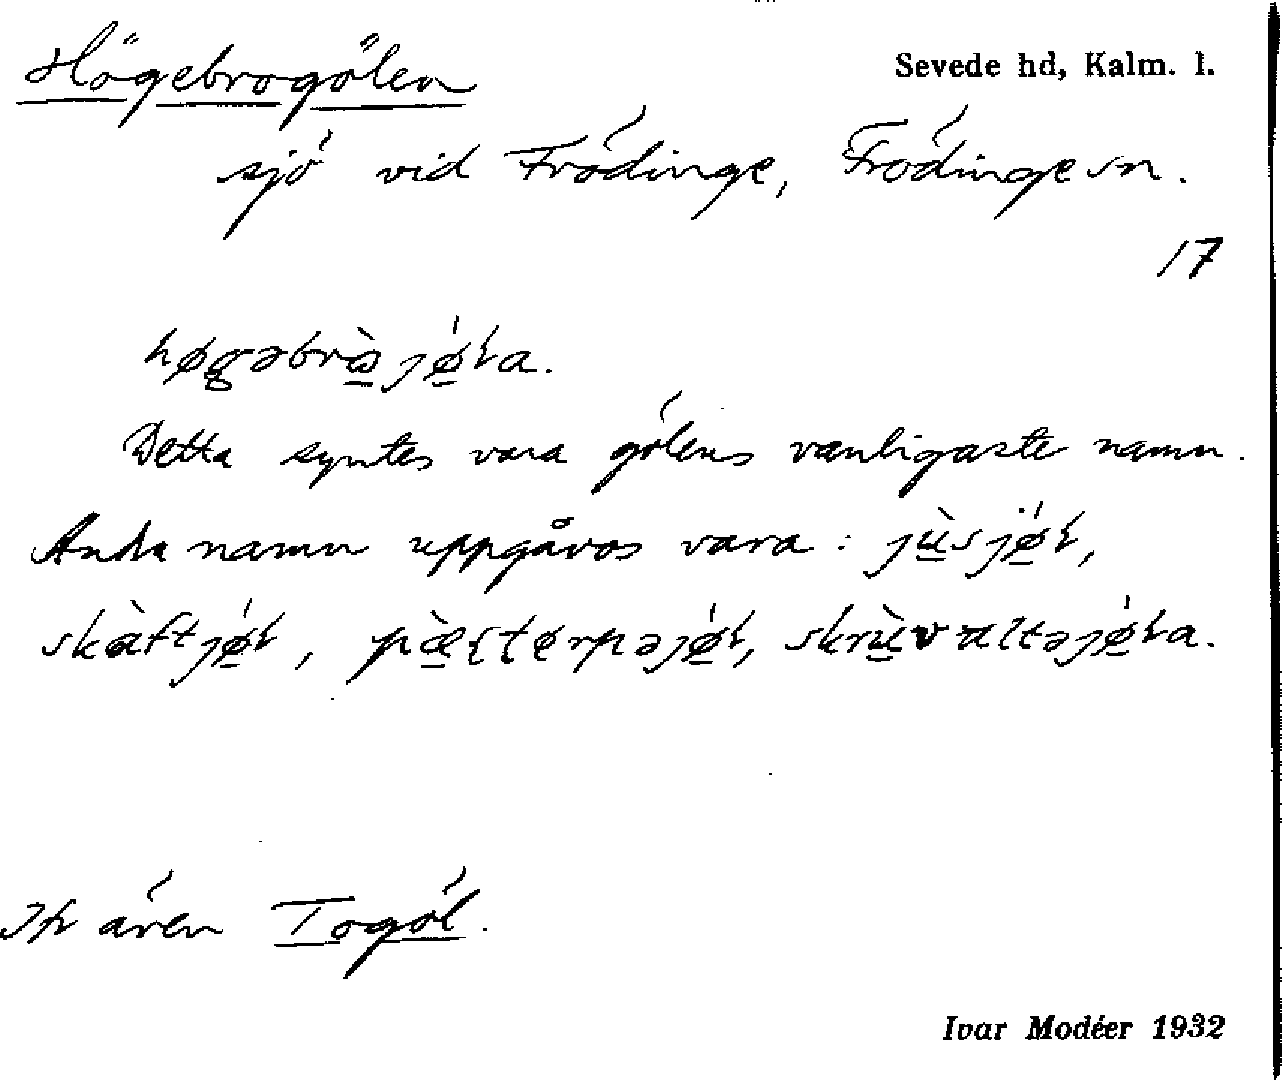 Högebrogölen
Sevede hd, Kalm. l.
sjö vid Frödinge, Frödinge sn.
17
høgəbrɷ̀jǿɫa.
Detta syntes vara gölens vanligaste namn.
Andra namn uppgåvos vara: jùsjǿɫ,
skàftjǿɫ, pæ̀ʂʈørpəjǿɫ, skrùvaltəjǿɫa.
Jfr även Togöl.
Ivar Modéer 1932